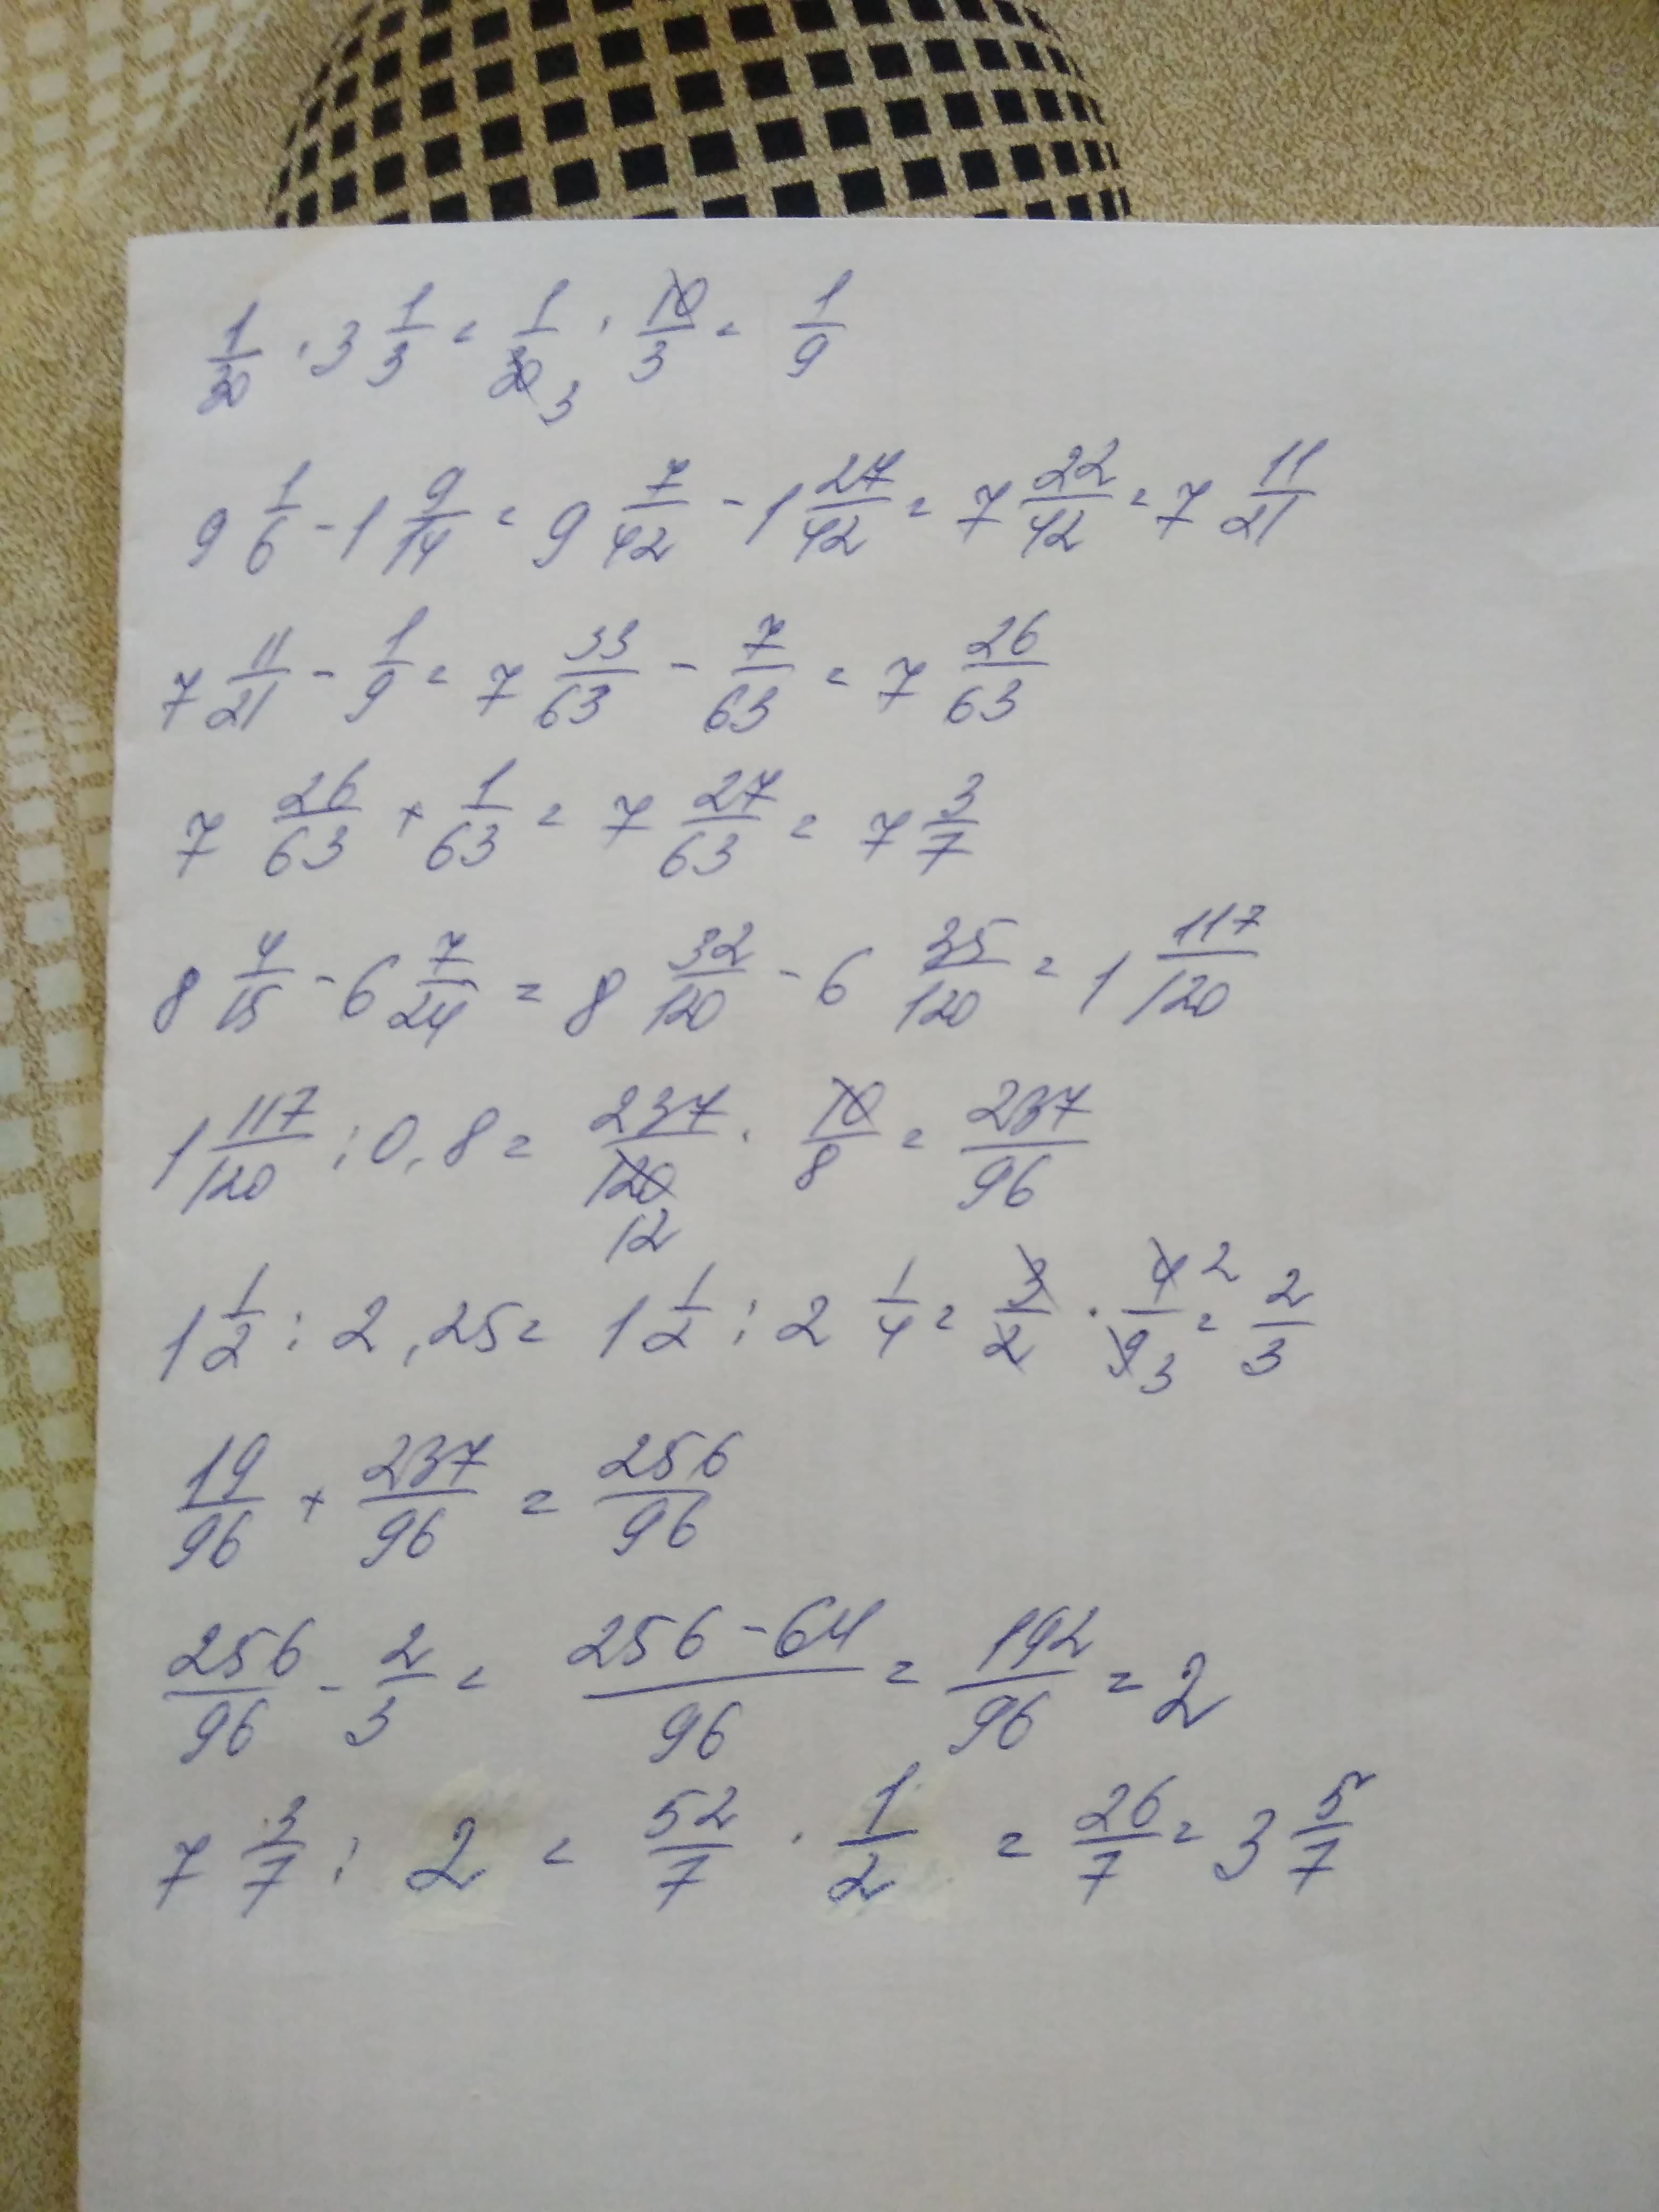 1/30 · 3 1/3 = 1/30 3 · 10/3 = 1/9
9 1/6 - 1 9/14 = 9 7/42 - 1 27/42 = 7 22/42 = 7 11/21
7 11/21 - 1/9 = 7 33/63 - 7/63 = 7 26/63
7 26/63 + 1/63 = 7 27/63 = 7 3/7
8 4/15 - 6 7/24 = 8 32/120 - 6 35/120 = 1 117/120
1 117/120 : 0,8 = 237/120 12 · 10/8 = 237/96
1 1/2 : 2,25 = 1 1/2 : 2 1/4 = 3/2 · 4 2/9 3 = 2/3
19/96 + 237/96 = 256/96
256/96 - 2/3 = 256-64/96 = 192/96 = 2
7 3/7 : 2 = 52/7 · 1/2 = 26/7 = 3 5/7